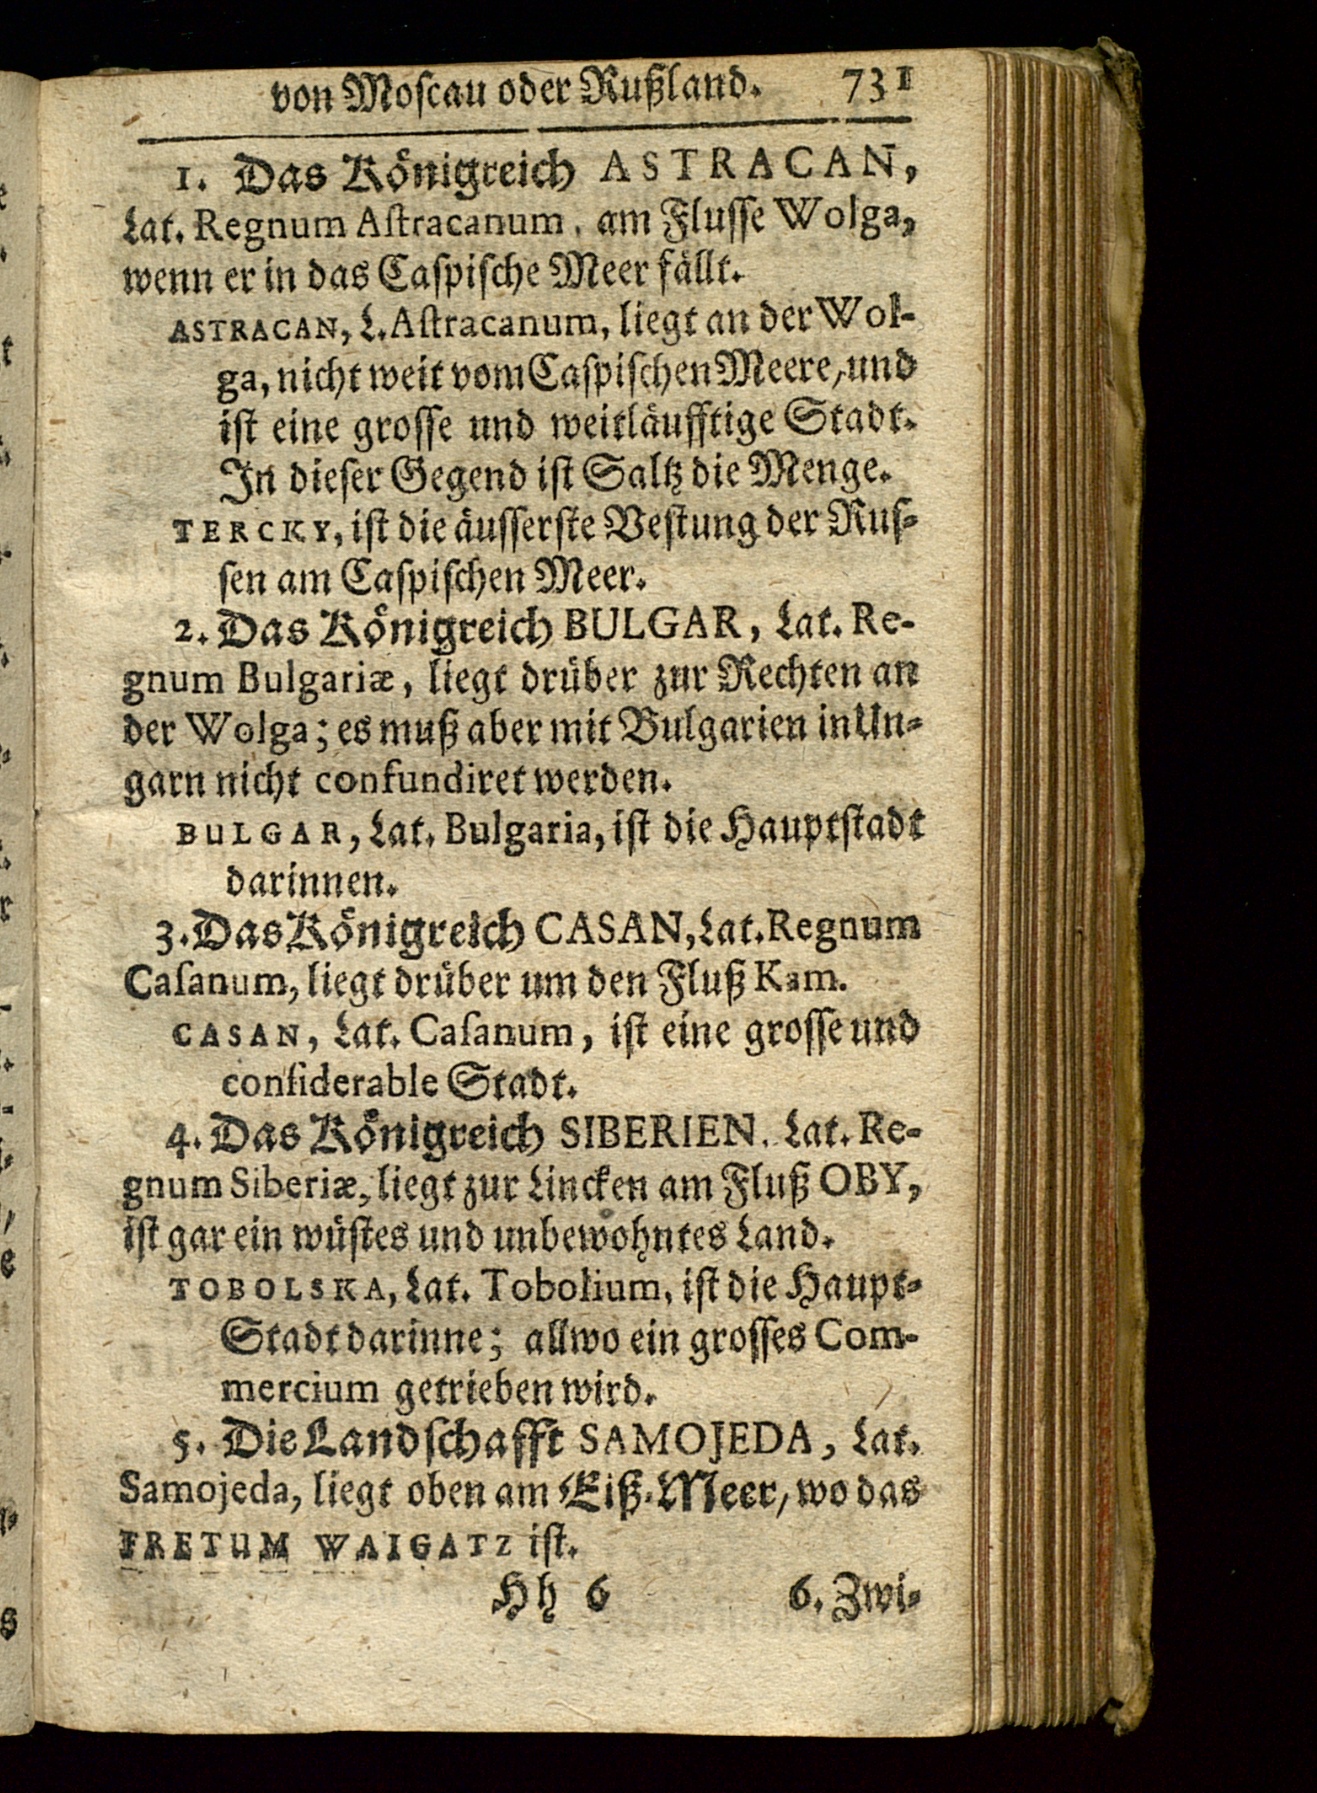 von Moſcau oder Rußland. 731
1. Das Königreich ASTRACAN,
Lat. Regnum Aſtracanum, am Fluſſe Wolga,
wenn er in das Caſpiſche Meer fällt.
ASTRACAN, L. Aſtracanum, liegt an der Wol-
ga, nicht weit vom Caſpiſchen Meere, und
iſt eine groſſe und weitläufftige Stadt.
In dieſer Gegend iſt Saltz die Menge.
TERCKY, iſt die äuſſerſte Veſtung der Ruſ-
ſen am Caſpiſchen Meer.
2. Das Königreich BULGAR, Lat. Re-
gnum Bulgariæ, liegt drüber zur Rechten an
der Wolga; es muß aber mit Bulgarien in Un-
garn nicht confundiret werden.
BULGAR, Lat. Bulgaria, iſt die Hauptſtadt
darinnen.
3. Das Königreich CASAN, Lat. Regnum
Caſanum, liegt drüber um den Fluß Kam.
CASAN, Lat. Caſanum, iſt eine groſſe und
conſiderable Stadt.
4. Das Königreich SIBERIEN. Lat. Re-
gnum Siberiæ, liegt zur Lincken am Fluß OBY,
iſt gar ein wüſtes und unbewohntes Land.
TOBOLSKA, Lat. Tobolium, iſt die Haupt-
Stadt darinne; allwo ein groſſes Com-
mercium getrieben wird.
5. Die Landſchafft SAMOJEDA, Lat.
Samojeda, liegt oben am Eiß-Meer, wo das
FRETUM WAIGATZ iſt.
Hh 6 6. Zwi-